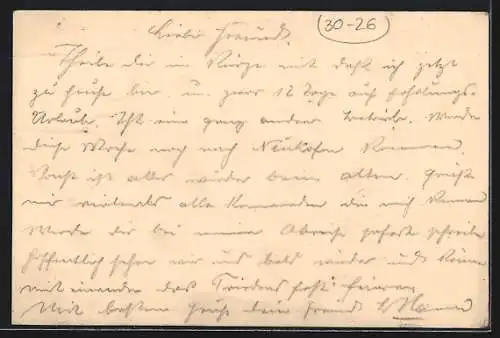 Lieber Freund. 30-26
Theile dir in Kürze mit daß ich jetzt
zu Hause bin u. zwar 12 Tage auf Erholungs-
Urlaub. Ist ein ganz anderer Betrieb. Werde
diese Woche noch nach Neukofen kommen.
Sonst ist alles wieder beim alten. Grüße
mir vielmals alle Kameraden die mich kennen
Werde dir bei meiner Abreise sofort schreiben
Hoffentlich sehen wir uns bald wieder und können
mit einander das Friedensfest feiern.
Mit bestem Gruß dein Freund